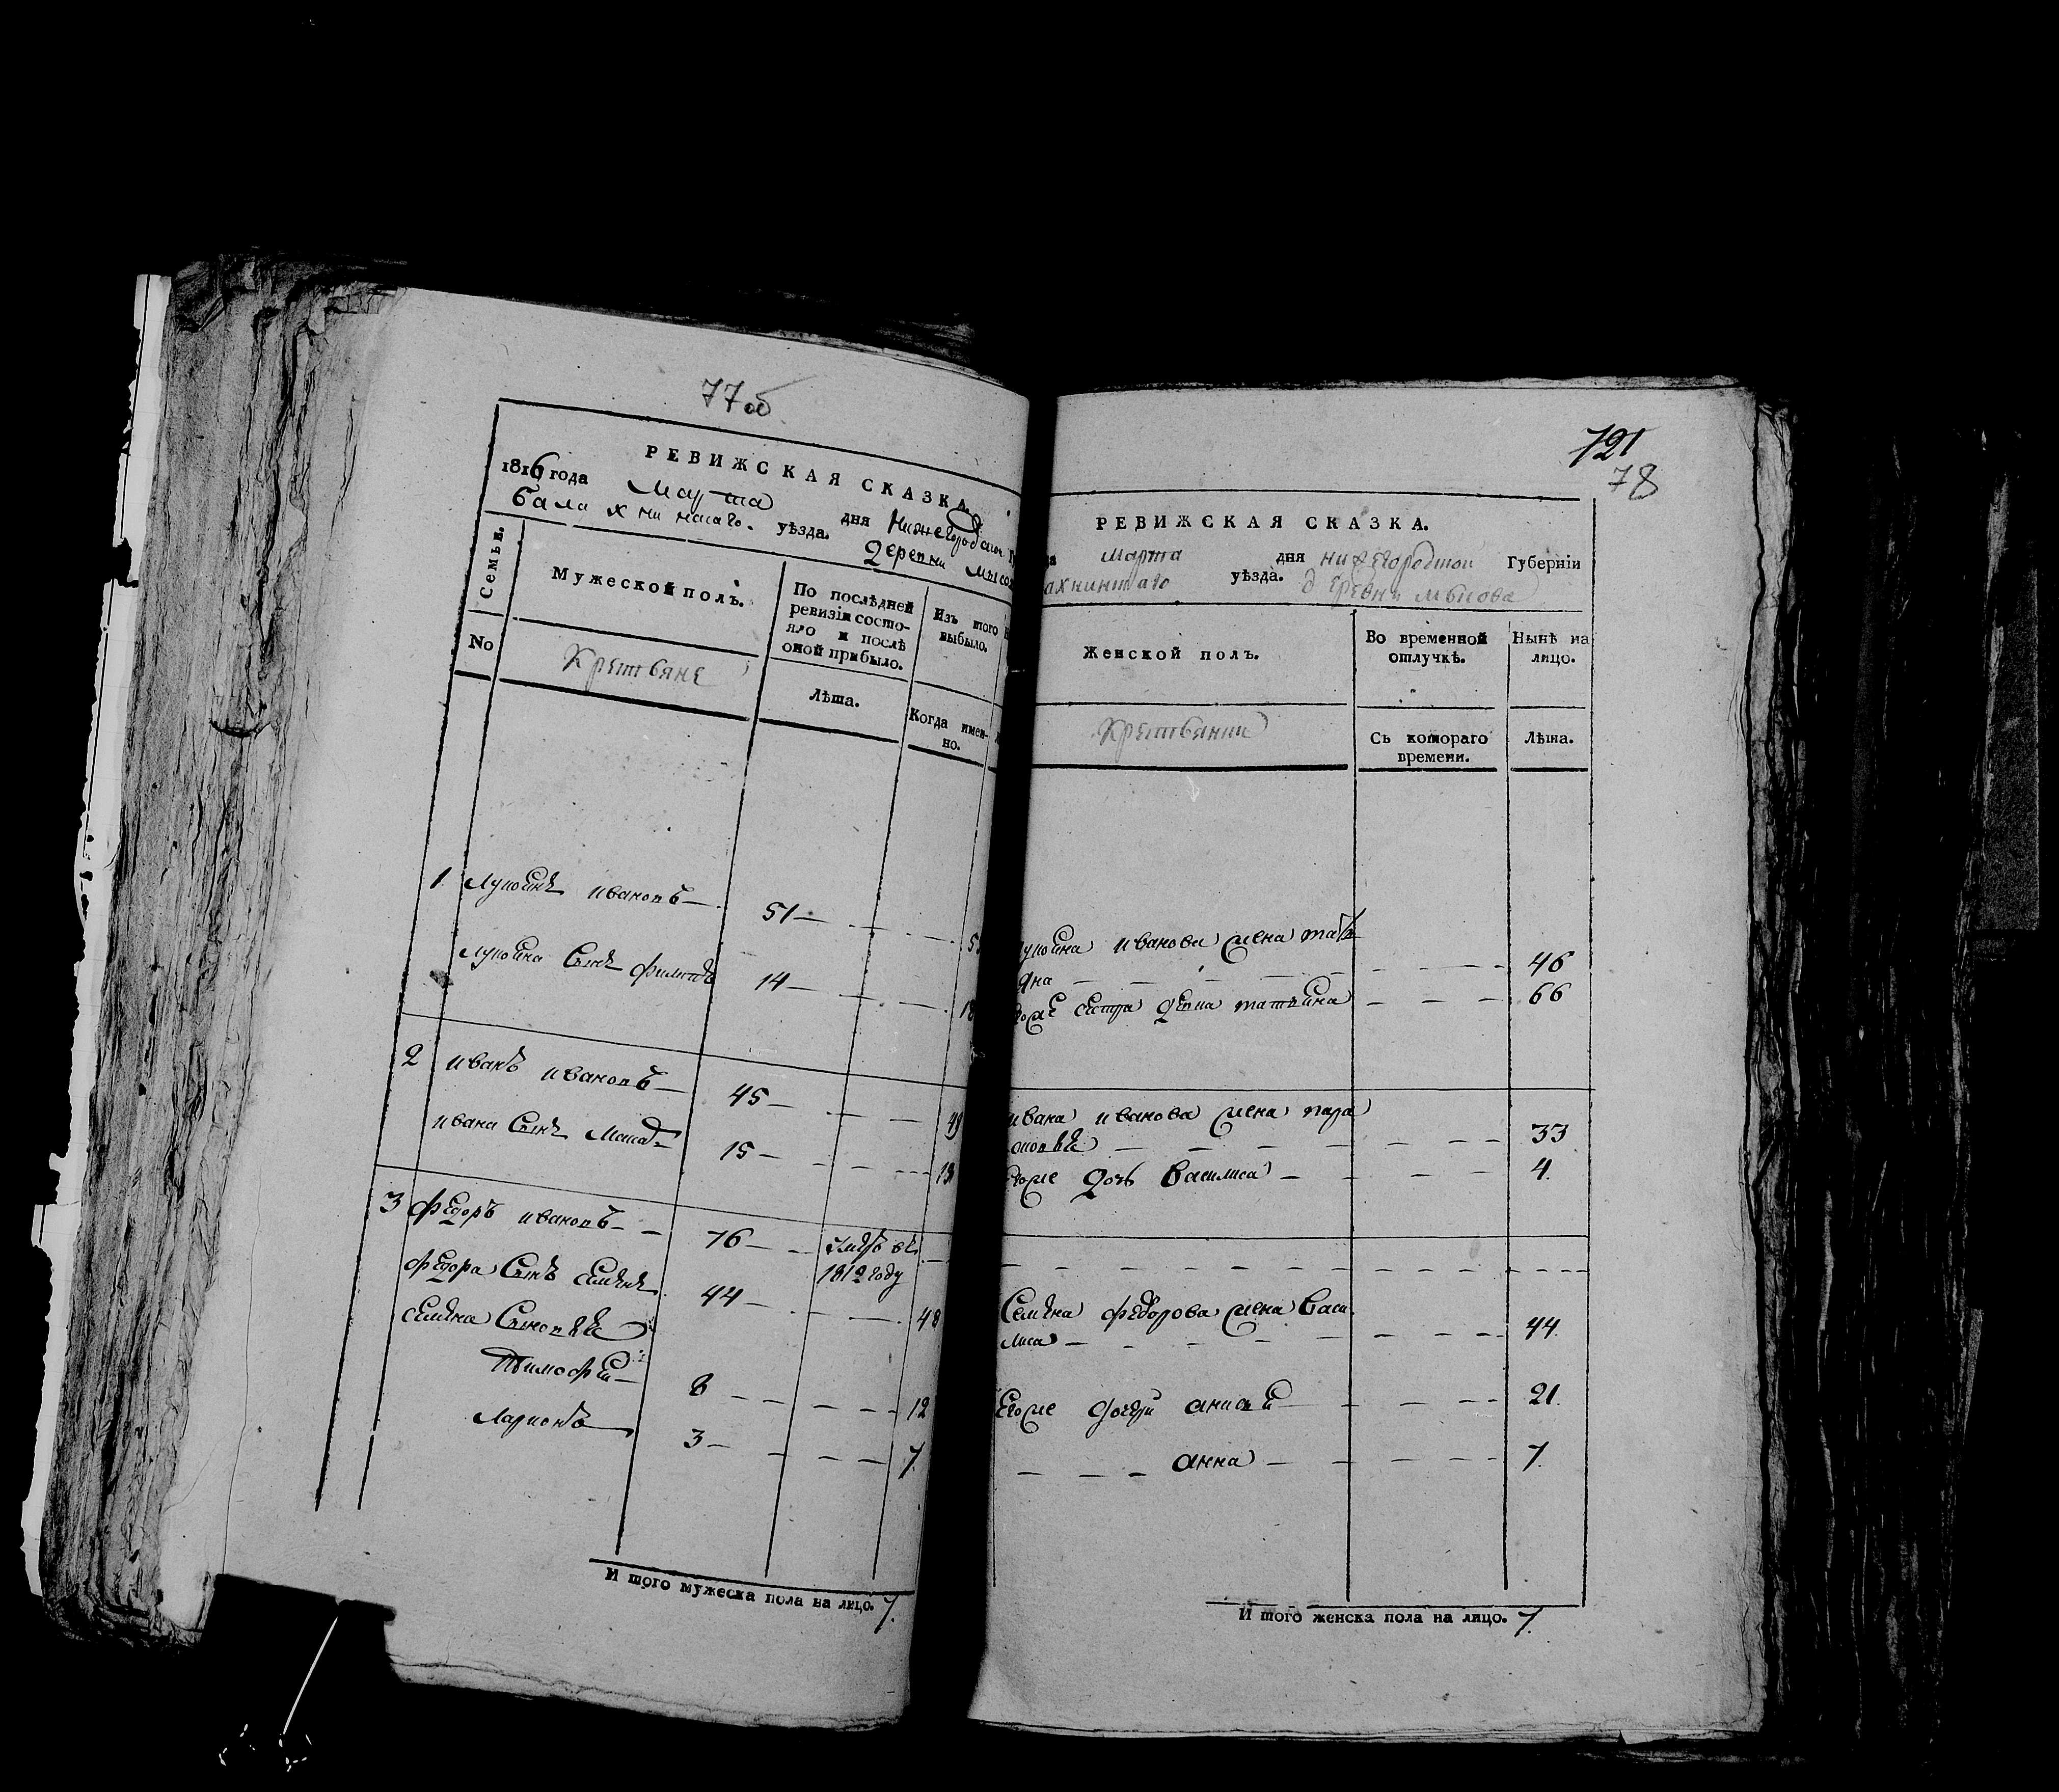 77 об
РЕВИЖСКАЯ СКАЗКА.
1816 года Марта дня Нижегородской
балахнинскаго уѣзда. деревни мысо
Семьи.
Мужеской полъ.
По послѣдней ревизіи состо-
яло и послѣ оной прибыло.
Изъ того выбыло.
No
Крестьяне
Лѣта.
Когда имен-
но.
1. Лупоянъ ивановъ 51
Лупояна Сынъ 14
2 иванъ ивановъ 45 49
ивана Сынъ 15
3 Федоръ ивановъ 76 умръ въ
1812 году
Федора Сынъ Семенъ 44 48
Семена Сыновья
Тимофей 8 12
Ларионъ 3 7.
И того мужеска пола на лицо. 7.
721
78
РЕВИЖСКАЯ СКАЗКА.
да марта дня нижегородской Губерніи
ахнинскаго уѣзда. деревни мысова
Женской полъ.
Во временной отлучкѣ.
Нынѣ на лицо.
Крестьянки
Съ котораго времени.
Лѣта.
упояна иванова жена тать
яна 46
сестра девка татьяна 66
ивана иванова жена пара
сковья 33
Егоже дочь Василиса 4.
Семена федорова жена Васи
лиса 44.
Егоже дочери 21.
анна 7.
И того женска пола на лицо. 7.